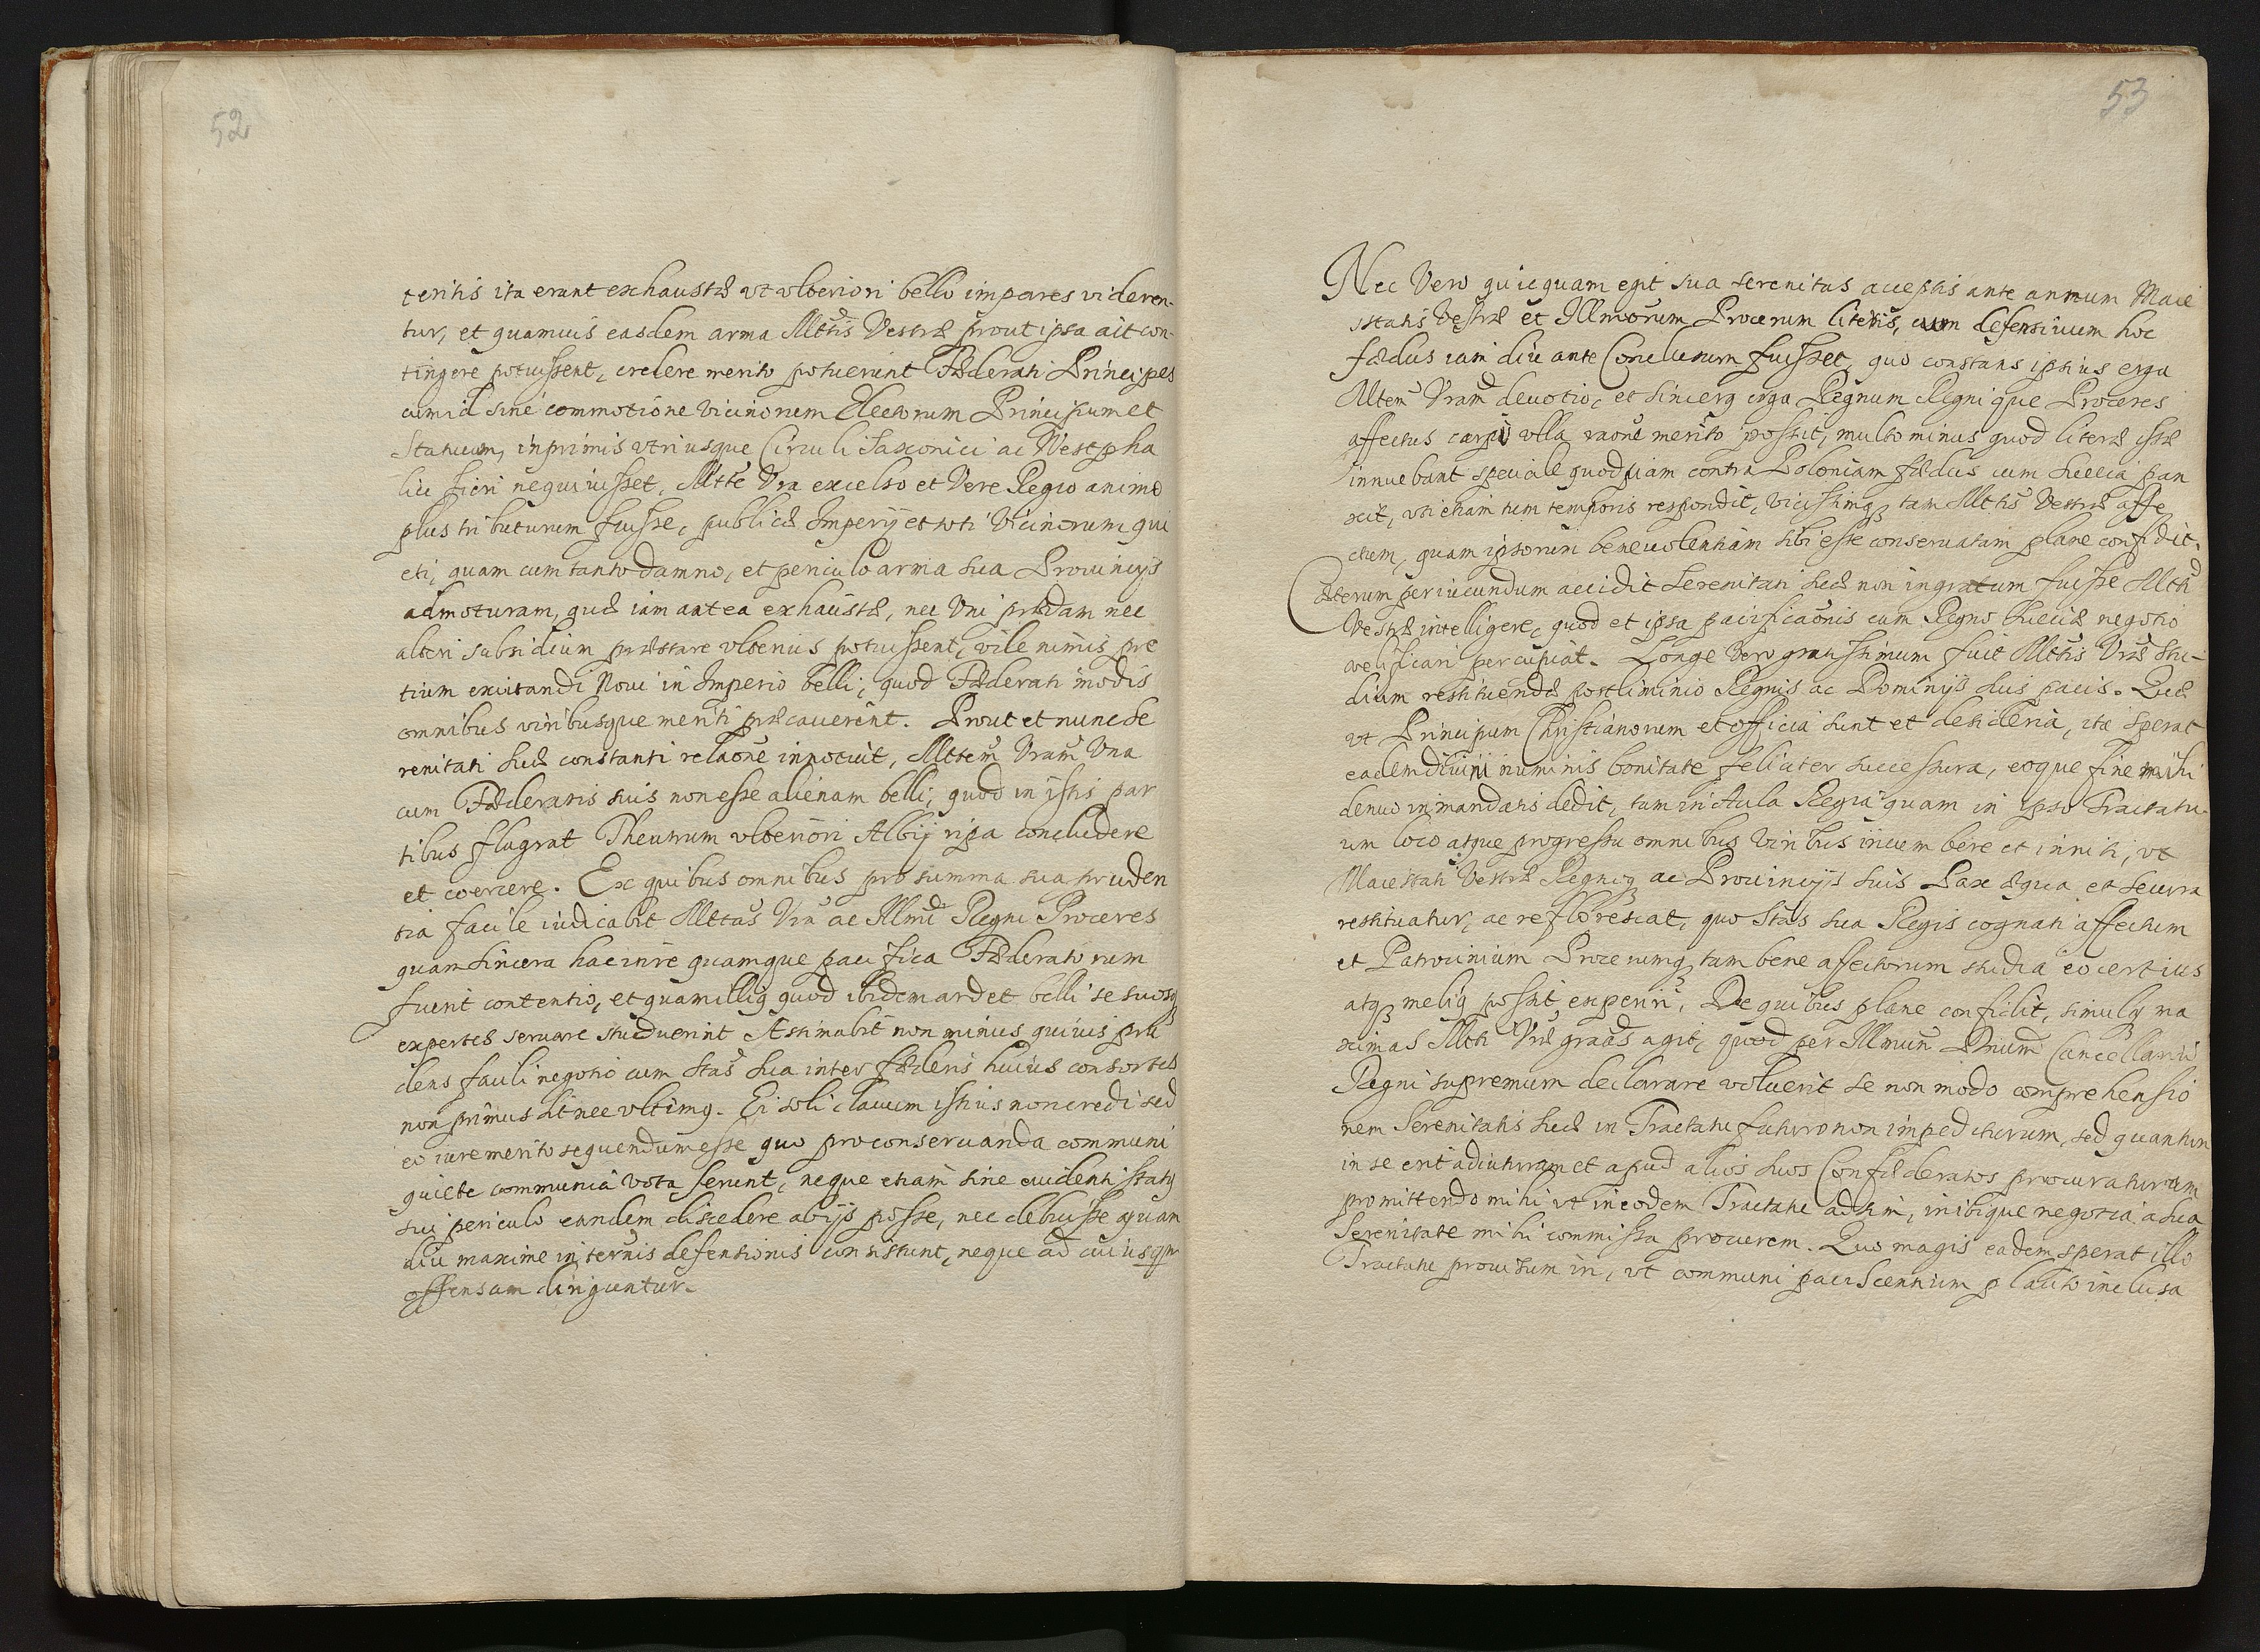 52
teritis ita erant exhaustæ vt vlteriori bello impares videren-
tur, et quamuis easdem arma Mttis Vestræ prout ipsa ait con-
tingere potuissent, credere merito potuerint Fæderati Principes
cum id sine commotione vicinorum Electorum Principum et
Statuum, inprimis vtriusque Circuli Saxonici ac Westpha
lici fieri nequiuisset, Mtte Vra excelso et Vere Regio animo
plus tributurum fuisse, publicæ Imperij et toti Vicinorum qui
eti, quam cum tanto damno, et periculo arma sua Prouincijs
admoturam, quæ iam antea exhaustæ, nec Vni prædam nec
alteri subsidium præstare vlterius potuissent, vile nimis pre
tium excitandi Noui in Imperio belli, quod Fæderati modis
omnibus viribusque meriti præcauerent. Prout et nunc Se
renitati suæ constanti relaone innotuit, Mttem Vram Vna
cum Fæderatis suis non esse alienam belli, quod in istis par
tibus flagrat Theatrum vlteriori Albij ripa concludere
et coercere. Ex quibus omnibus pro summa sua pruden
tia facile iudicabit Mttas Vra ac Illmi Regni Proceres
quam sincera hac in re quamque pacifica Fæderatorum
fuerit contentio, et quam illiq quod ibidem ardet belli se suosq
expertes seruare studuerint Æstimabit non minus quiuis pru
dens fauli negotio cum Stas Sua inter fæderis huius consortes
non primus sit nec vltimq. Ei soli clauum istius non credi sed
eo iure merito sequendum esse quo pro conseruanda communi
quiete communia vota ferunt, neque etiam sine euidenti statq
sui periculo eandem discedere ab ijs posse, nec debuisse quam
diu maxime in ternis defensionis consistunt, neque ad cuiusqm
offensam diriguntur.
53
Nec Vero quicquam egit sua serenitas acceptis ante annum Maie
statis Vestræ et Illmorum Procerum literis, cum defensiuum hoc
fædus iam diu ante Conclusum fuisset, quo constans ipsius erga
Mttem Vram deuotio, et sincerq erga Regnum Regnique Proceres
affectus carpi vlla raone merito possit, multo minus quod literæ istæ
innuebant speciale quodpiam contra Poloniam fædus cum Suecia pan
xit, vti etiam tum temporis respondit, vicissimq tam Mttis Vestræ affe
ctum, quam ipsorum beneuolentiam sibi esse conseruatam plane confidit.
Cæterum periucundum accidit Serenitati suæ non ingratum fuisse Mtti
Vestræ intelligere, quod et ipsa pacificaonis cum Regno Sueciæ negotio
velificari percupiat. Longe Vero gratissimum fuit Mttis Vræ Stu-
dium restituendæ postliminio Regnis ac Dominijs suis pacis. Quæ
vt Principum Christianorum et officia sunt et desideria, ita sperat
eadem diuini numinis bonitate feliciter successura, eoque fine mihi
denuo in mandatis dedit, tam in Aula Regia quam in ipso Tractatu-
um loco atque progressu omnibus Viribus incumbere et inniti, vt
Maiestati Vestræ Regniq ac Prouincijs suis Pax æqua et secura
restituatur, ac reflorescat, quo Stas sua Regis cognati affectum
et Patrocinium Procerumq tam bene affectorum studia eo certius
atq meliq possit experiri, De quibus plane confidit, simulq ma
ximas Mtti Vræ graas agit, quod per Illmum Dnum Cancellariu
Regni supremum declarare voluerit se non modo comprehensio
nem Serenitatis suæ in Tractatu futuro non impediturum, sed quantum
in se erit adiuturam et apud alios suos Confæderatos procuraturam
promittendo mihi vt in eodem Tractatu adsim, inibique negotia a sua
Serenitate mihi commissa procurem. Quo magis eadem sperat illo
Tractatu prouisum iri, vt communi paciscentium placito inclusa